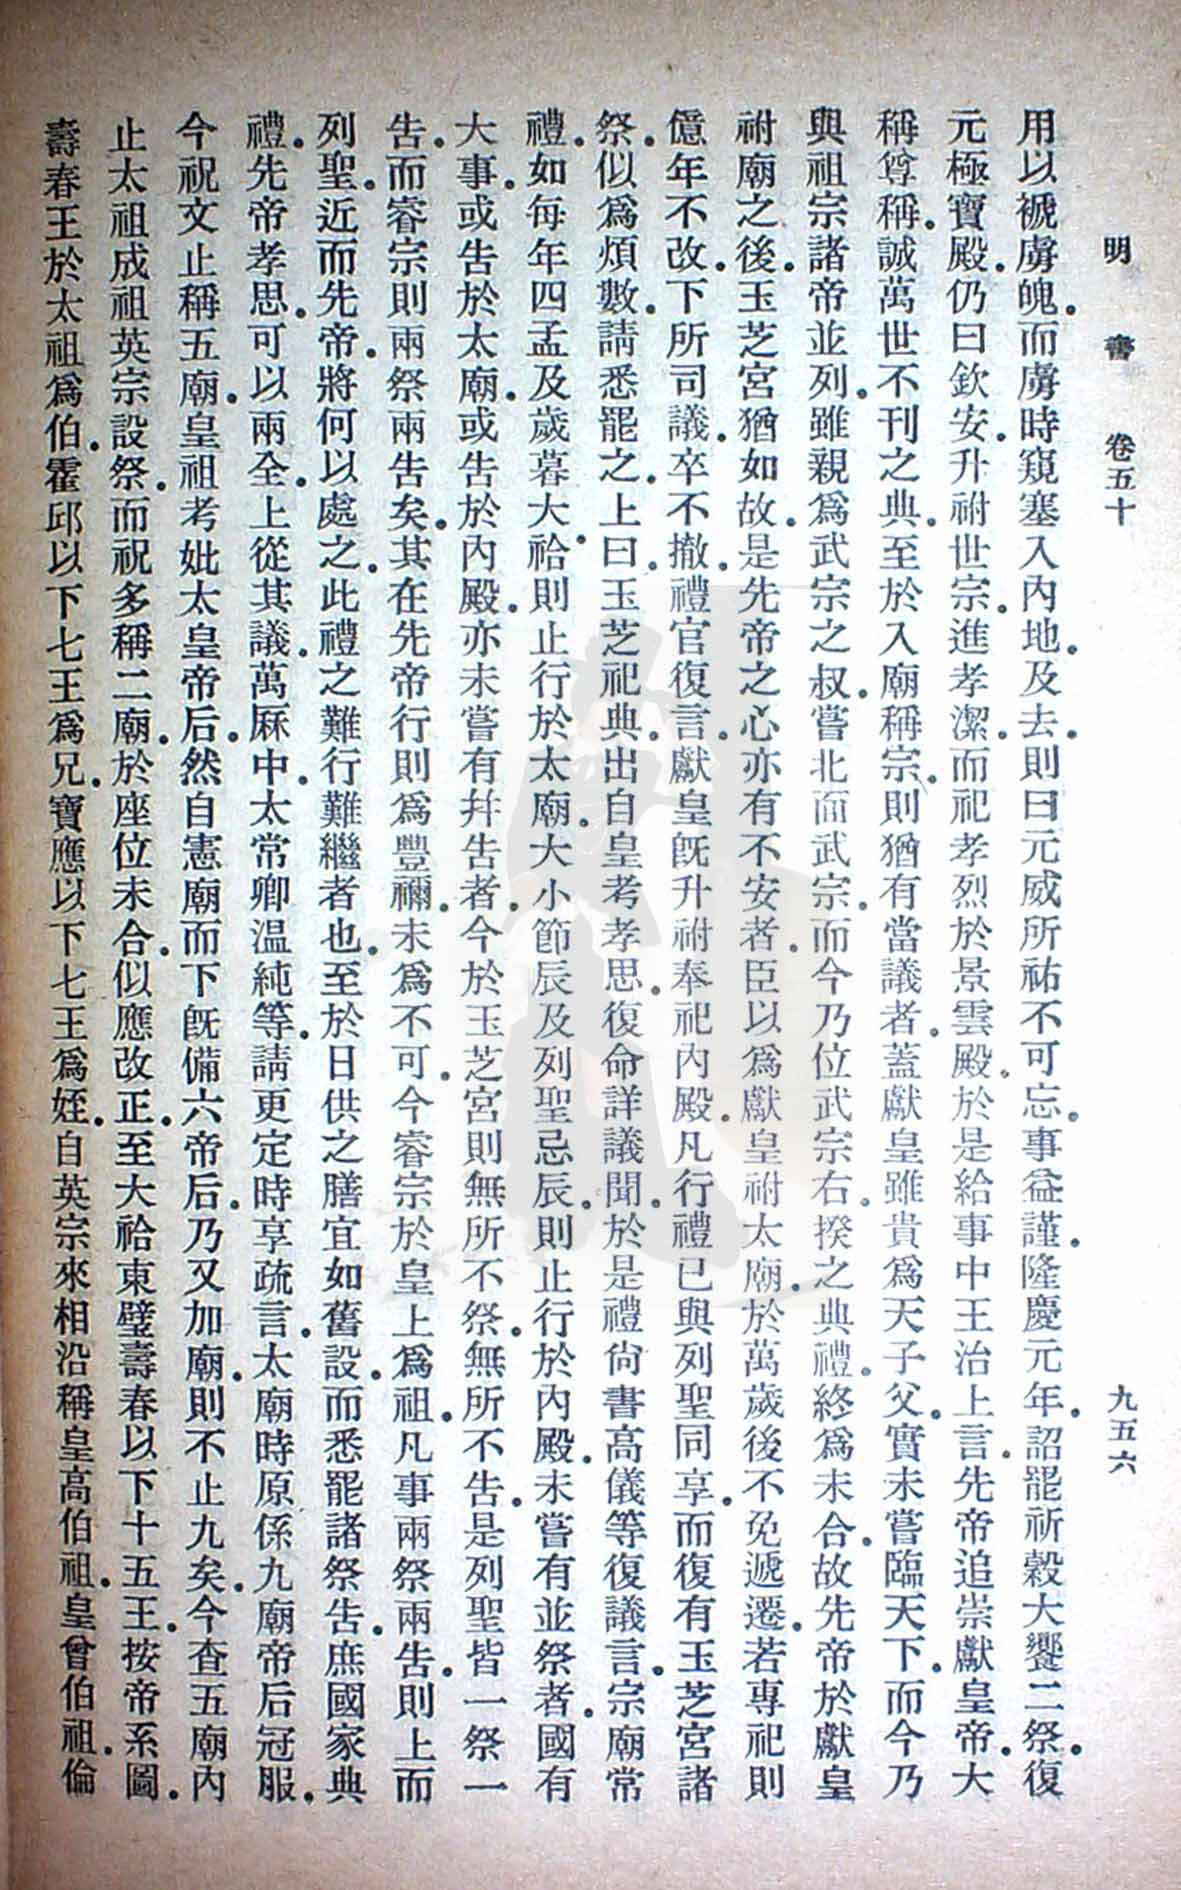 明書 卷五十 九五六
用以褫虜魄。而虜時窺塞入內地。及去。則曰元威所祐不可忘。事益謹。隆慶元年。詔罷祈穀大饗二祭。復
元極寶殿。仍曰欽安。升祔世宗。進孝潔。而祀孝烈於景雲殿。於是給事中王治上言。先帝追崇獻皇帝。大
稱尊稱。誠萬世不刊之典。至於入廟稱宗。則猶有當議者。蓋獻皇雖貴爲天子父。實未嘗臨天下。而今乃
與祖宗諸帝並列。雖親爲武宗之叔。嘗北面武宗。而今乃位武宗右。揆之典禮。終爲未合。故先帝於獻皇
祔廟之後。玉芝宮猶如故。是先帝之心。亦有不安者。臣以爲獻皇祔太廟。於萬歲後不免遞遷。若專祀則
億年不改。下所司議。卒不撤。禮官復言。獻皇旣升祔奉祀內殿。凡行禮已與列聖同享。而復有玉芝宮諸
祭。似爲煩數。請悉罷之。上曰。玉芝祀典。出自皇考孝思。復命詳議聞。於是禮尙書高儀等復議言。宗廟常
禮。如每年四孟及歲暮大祫。則止行於太廟。大小節辰及列聖忌辰。則止行於內殿。未嘗有並祭者。國有
大事。或告於太廟。或告於內殿。亦未嘗有幷告者。今於玉芝宮則無所不祭。無所不告。是列聖皆一祭一
告。而睿宗則兩祭兩告矣。其在先帝行則爲豐禰。未爲不可。今睿宗於皇上爲祖。凡事兩祭兩告。則上而
列聖。近而先帝。將何以處之。此禮之難行難繼者也。至於日供之膳宜如舊設。而悉罷諸祭告。庶國家典
禮。先帝孝思。可以兩全。上從其議。萬厤中。太常卿溫純等。請更定時享疏言。太廟時原係九廟帝后冠服。
今祝文止稱五廟。皇祖考妣太皇帝后。然自憲廟而下旣備六帝后。乃又加廟。則不止九矣。今查五廟內
止太祖成祖英宗設祭。而祝多稱二廟。於座位未合。似應改正。至大祫東璧壽春以下十五王。按帝系圖。
壽春王於太祖爲伯。霍邱以下七王爲兄。寶應以下七王爲姪。自英宗來相沿稱皇高伯祖。皇曾伯祖。倫